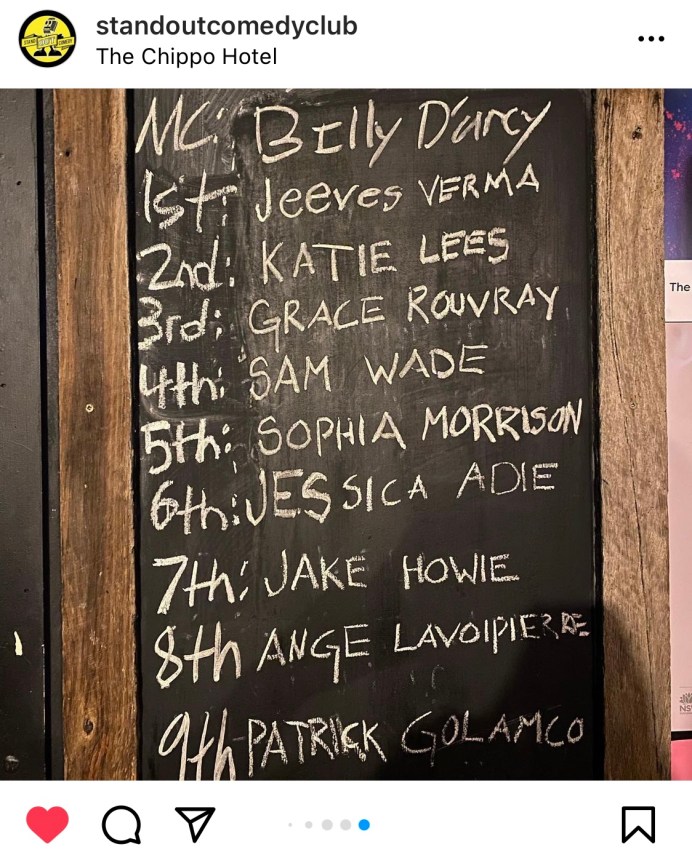 standoutcomedyclub
The Chippo Hotel
MC: Billy D'arcy
1st: Jeeves VERMA
2nd: KATIE LEES
3rd: GRACE ROUVRAY
4th: SAM WADE
5th: SOPHIA MORRISON
6th: JESSICA ADIE
7th: JAKE HOWIE
8th ANGE LAVOIPIERRE
9th PATRICK GOLAMCO
The
NS